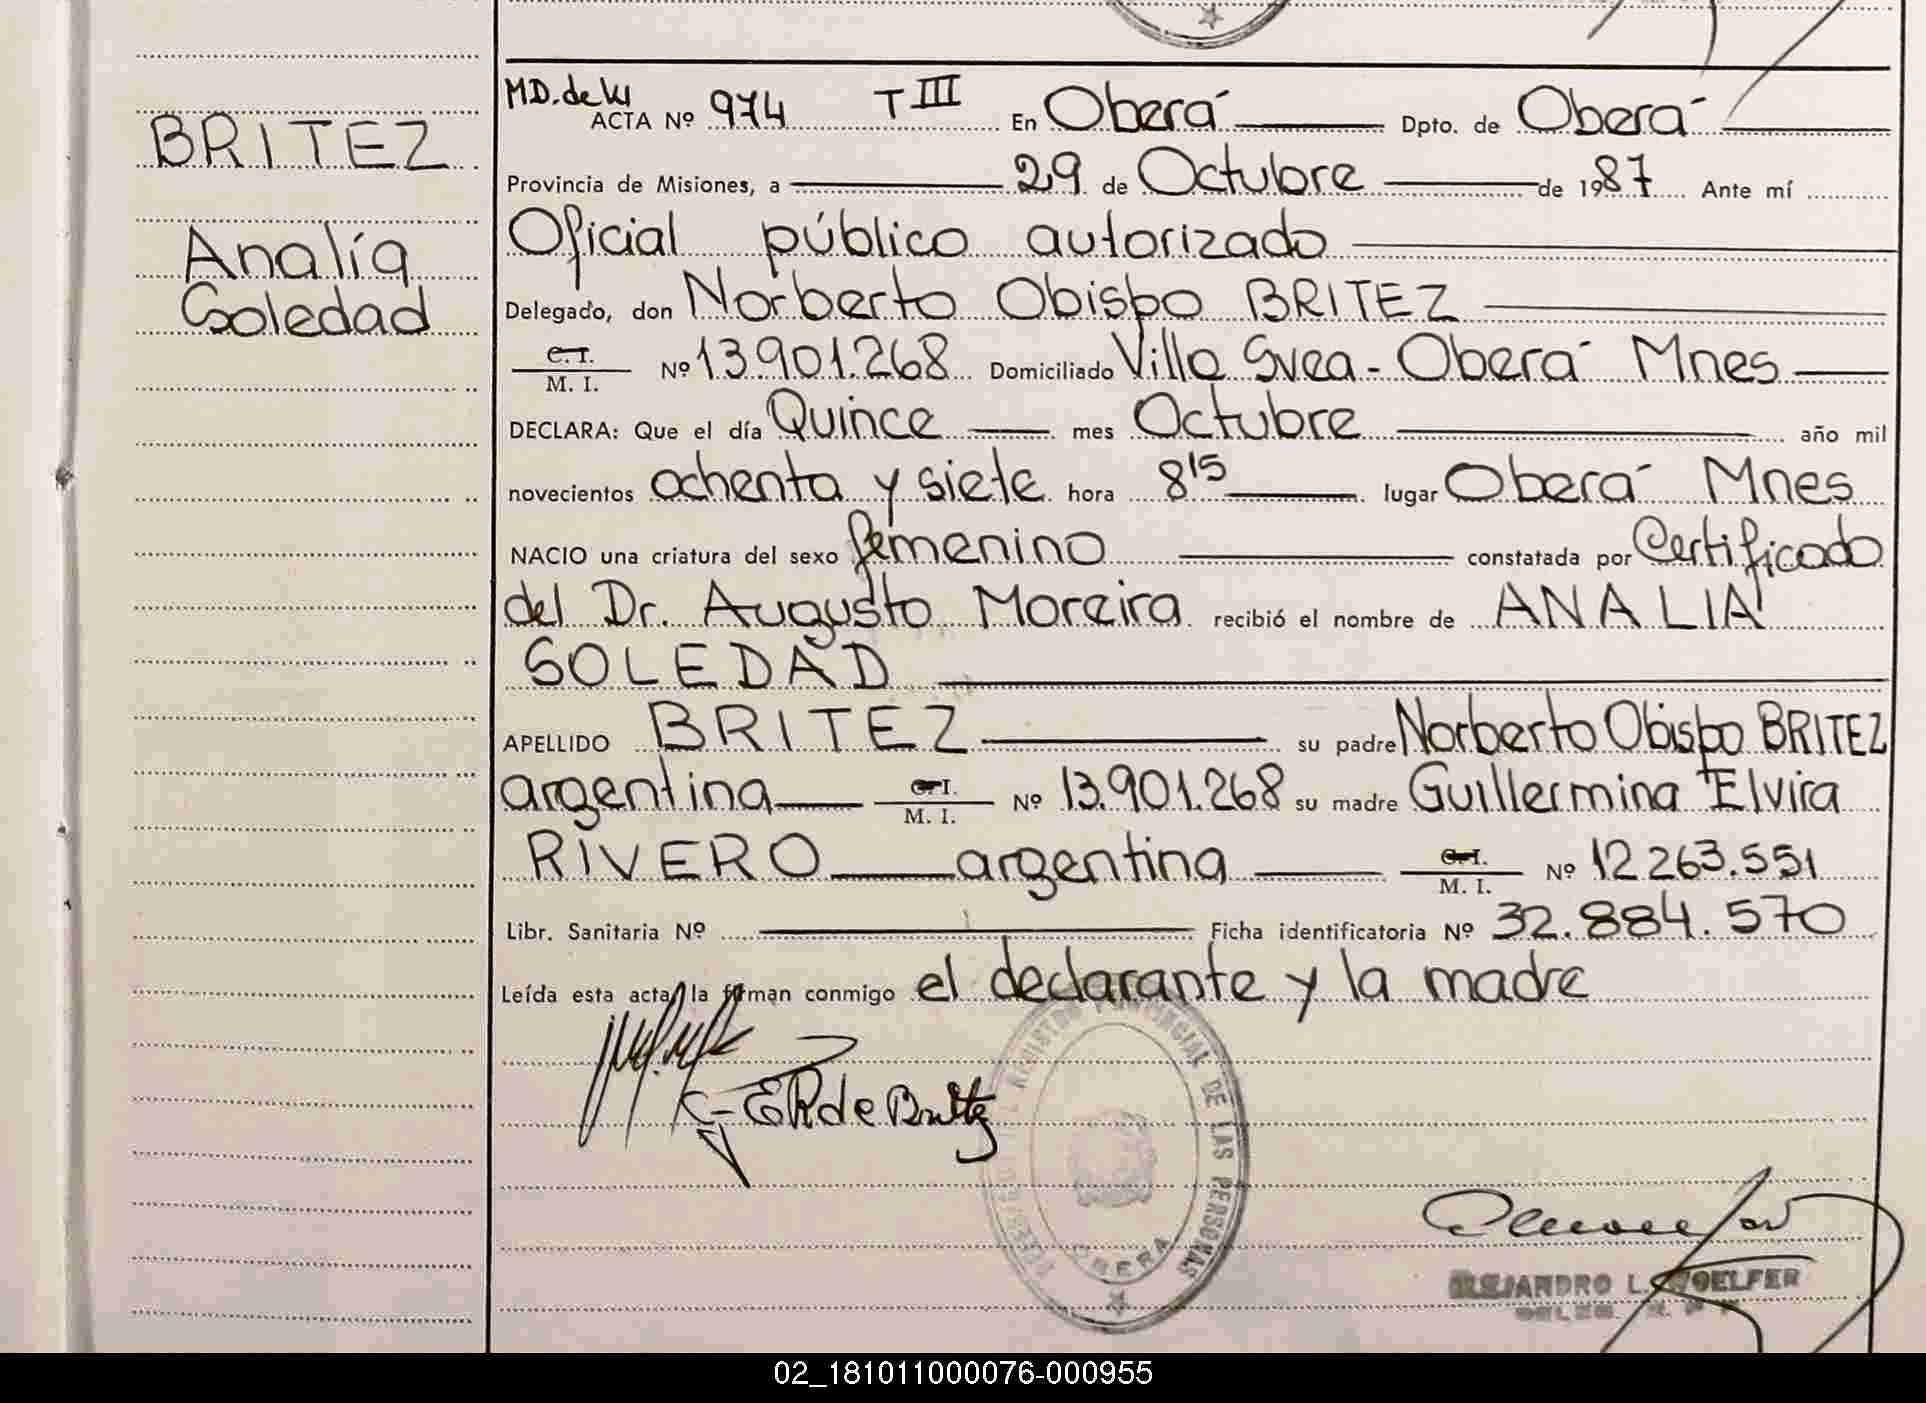 BRITEZ
Analía
Soledad
MD. de
ACTA Nº 974 T III En Oberá Dpto. de Oberá
Provincia de Misiones, a 29 de Octubre de 1987 Ante mí
Oficial público autorizado
Delegado, don Norberto Obispo BRITEZ
C. I.
M. I. Nº 13.901.268 Domiciliado Villa Svea - Oberá Mnes
DECLARA: Que el día Quince mes Octubre año mil
novecientos ochenta y siete hora 8 15 lugar Oberá Mnes
NACIO una criatura del sexo femenino constatada por Certificado
del Dr. Augusto Moreira recibió el nombre de ANALIA
SOLEDAD
APELLIDO BRITEZ su padre Norberto Obispo BRITEZ
argentina C. I. M. I. Nº 13.901.268 su madre Guillermina Elvira
RIVERO argentina C. I. M. I. Nº 12.263.551
Libr. Sanitaria Nº Ficha identificatoria Nº 32.884.570
Leída esta acta, la firman conmigo el declarante y la madre
G E R de Britez
REGISTRO PROVINCIAL DE LAS PERSONAS
OBERA
ALEJANDRO L. WOELFER
02_181011000076-000955